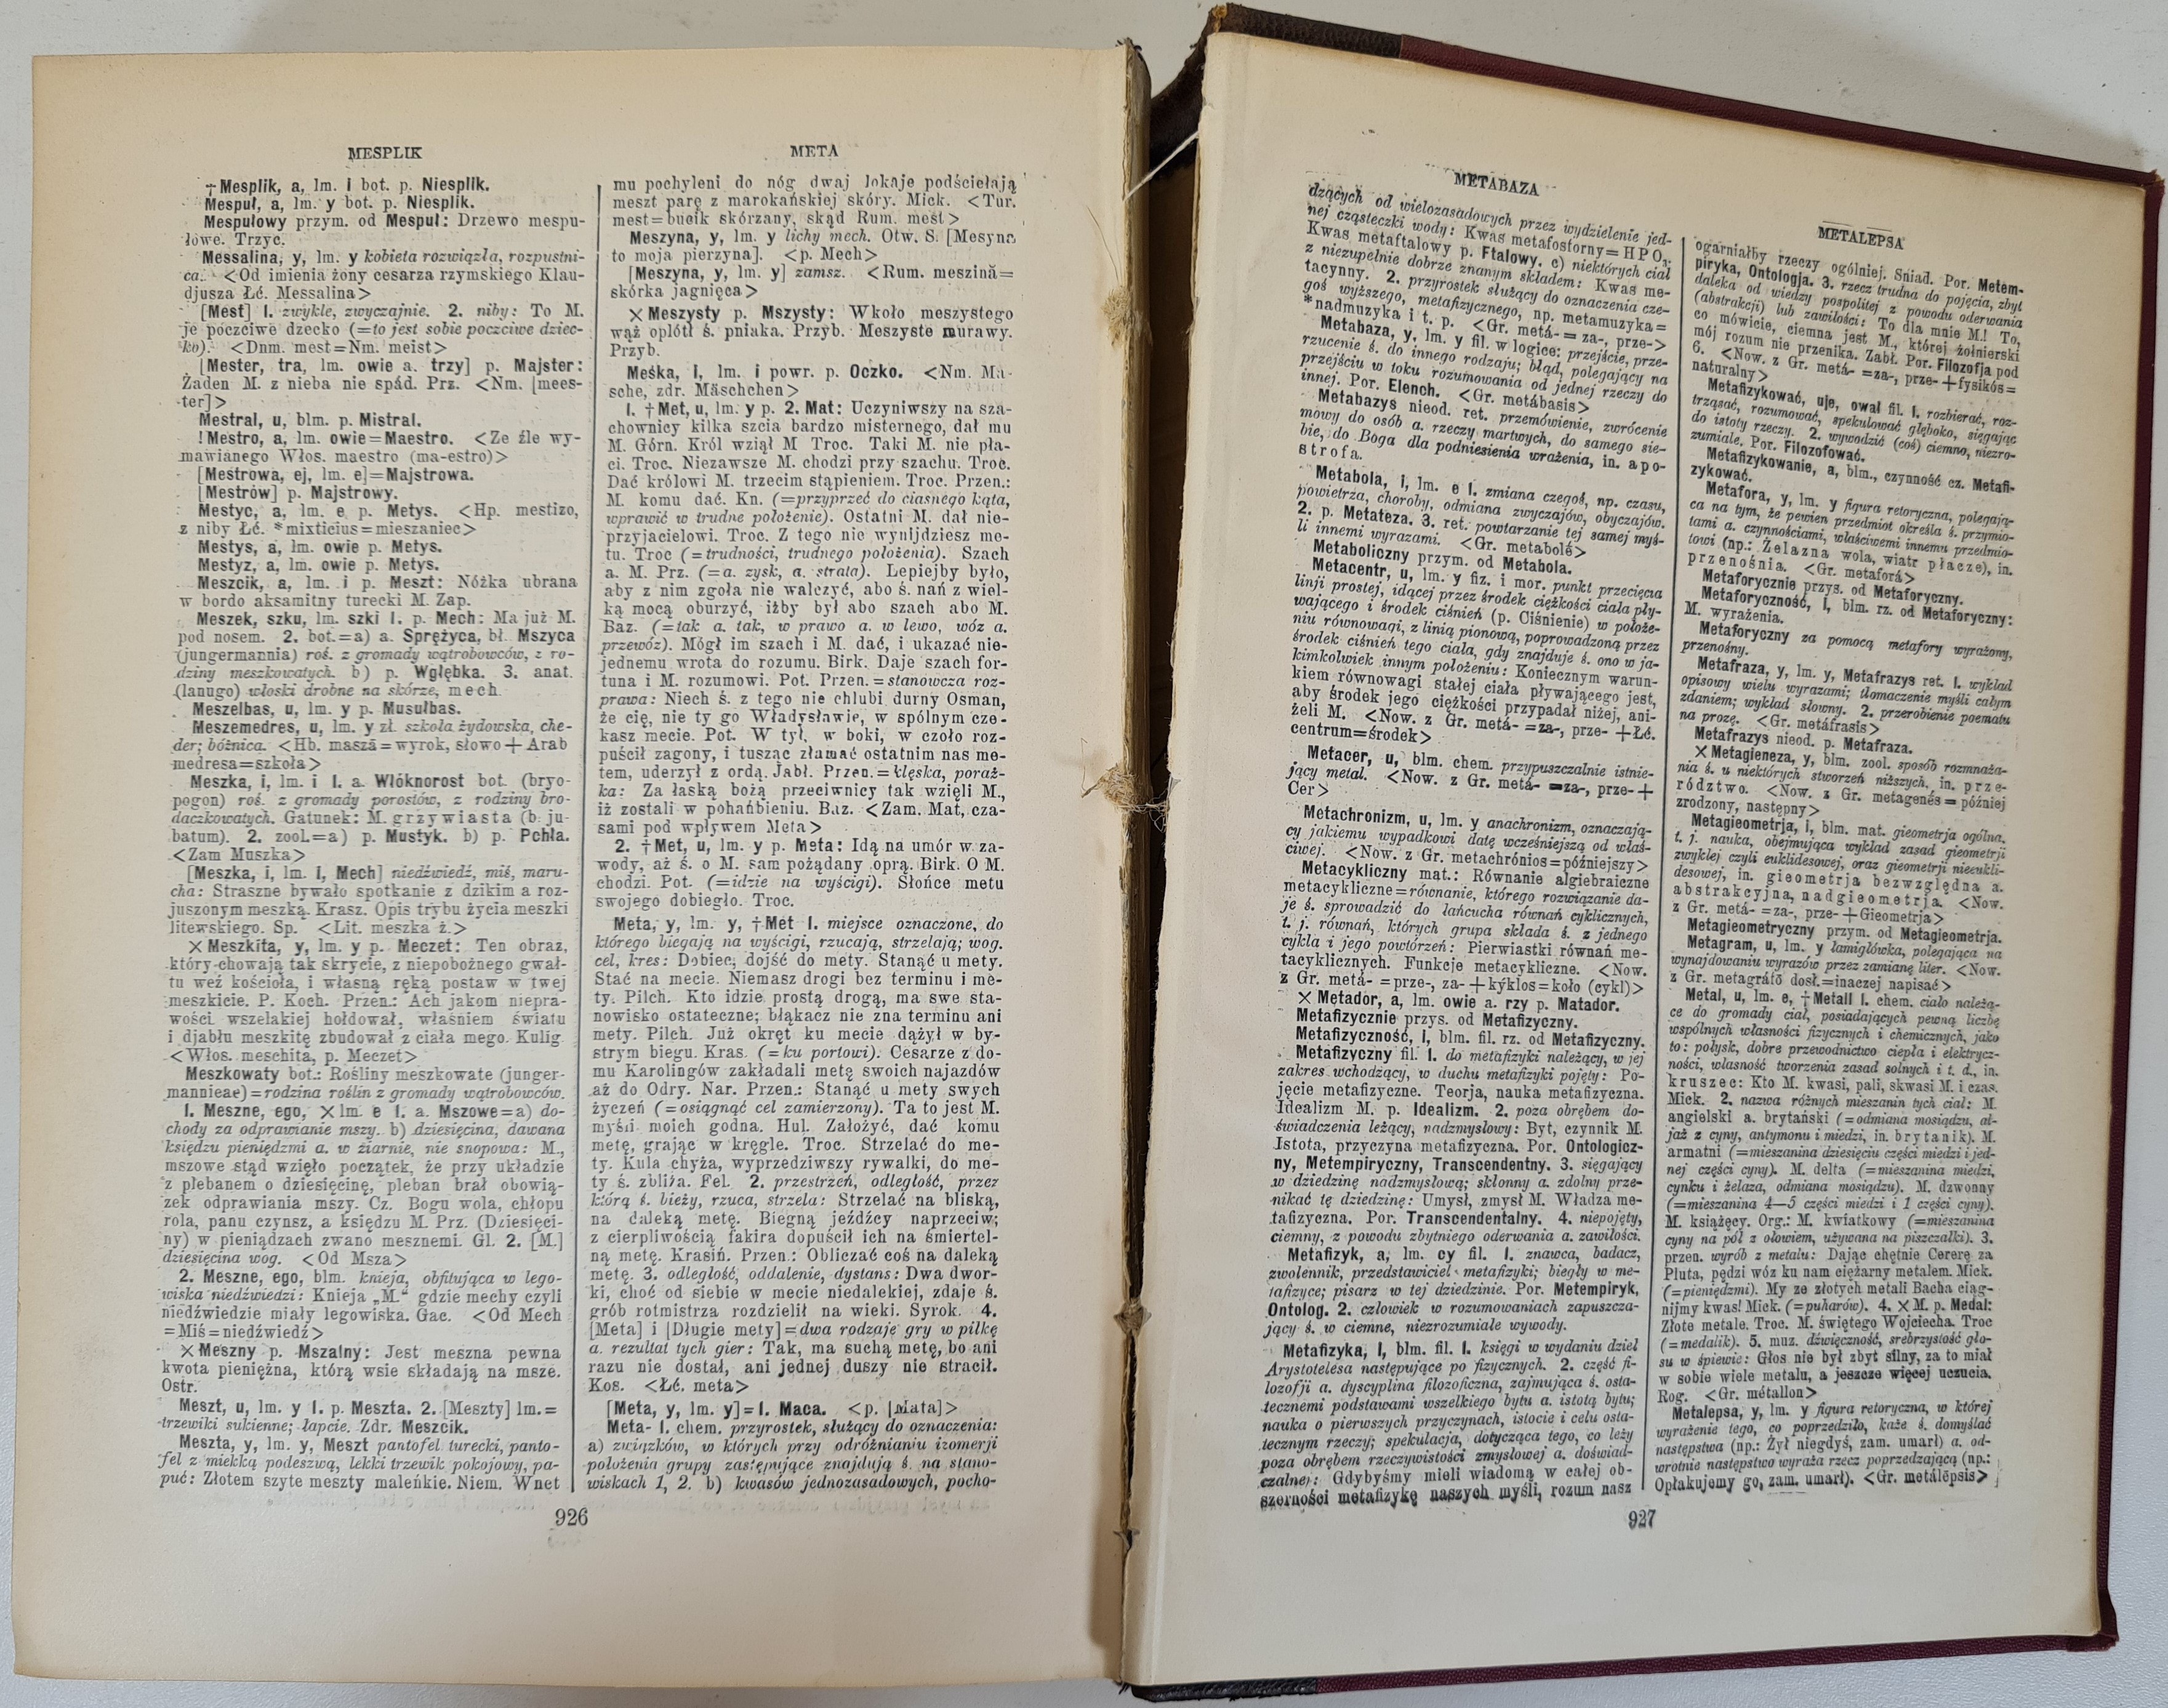 MESPLIK
†Mesplik, a, lm. i bot. p. Niesplik.
Mespuł, a, lm. y bot. p. Niesplik.
Mespułowy przym. od Mespuł: Drzewo mespu-
łowe. Trzyc.
Messalina, y, lm. y kobieta rozwiązła, rozpustni-
ca. <Od imienia żony cesarza rzymskiego Klau-
djusza Łć. Messalina>
[Mest] I. zwykle, zwyczajnie. 2. niby: To M.
je poczciwe dzecko (=to jest sobie poczciwe dziec-
ko). <Dnm. mest=Nm. meist>
[Mester, tra, lm. owie a. trzy] p. Majster:
Żaden M. z nieba nie spád. Prz. <Nm. [mees-
ter]>
Mestral, u, blm. p. Mistral.
!Mestro, a, lm. owie=Maestro. <Ze źle wy-
mawianego Włos. maestro (ma-estro)>
[Mestrowa, ej, lm. e]=Majstrowa.
[Mestrów] p. Majstrowy.
Mestyc, a, lm. e p. Metys. <Hp. mestizo,
z niby Łć. *mixticius=mieszaniec>
Mestys, a, lm. owie p. Metys.
Mestyz, a, lm. owie p. Metys.
Meszcik, a, lm. i p. Meszt: Nóżka ubrana
w bordo aksamitny turecki M. Zap.
Meszek, szku, lm. szki I. p. Mech: Ma już M.
pod nosem. 2. bot.=a) a. Sprężyca, bł. Mszyca
(jungermannia) roś. z gromady wątrobowców, z ro-
dziny meszkowatych. b) p. Wgłębka. 3. anat.
(lanugo) włoski drobne na skórze, mech.
Meszelbas, u, lm. y p. Musułbas.
Meszemedres, u, lm. y zł. szkoła żydowska, che-
der; bóżnica. <Hb. maszā=wyrok, słowo+Arab
medresa=szkoła>
Meszka, i, lm. i I. a. Włóknorost bot. (bryo-
pogon) roś. z gromady porostów, z rodziny bro-
daczkowatych. Gatunek: M. grzywiasta (b. ju-
batum). 2. zool.=a) p. Mustyk. b) p. Pchła.
<Zam Muszka>
[Meszka, i, lm. i, Mech] niedźwiedź, miś, maru-
cha: Straszne bywało spotkanie z dzikim a roz-
juszonym meszką. Krasz. Opis trybu życia meszki
litewskiego. Sp. <Lit. meszka ż.>
×Meszkita, y, lm. y p. Meczet: Ten obraz,
który chowają tak skrycie, z niepobożnego gwał-
tu weź kościoła, i własną ręką postaw w twej
meszkicie. P. Koch. Przen.: Ach jakom niepra-
wości wszelakiej hołdował, właśniem światu
i djabłu meszkitę zbudował z ciała mego. Kulig.
<Włos. meschita, p. Meczet>
Meszkowaty bot.: Rośliny meszkowate (junger-
mannieae)=rodzina roślin z gromady wątrobowców.
I. Meszne, ego, ×lm. e I. a. Mszowe=a) do-
chody za odprawianie mszy. b) dziesięcina, dawana
księdzu pieniędzmi a. w ziarnie, nie snopowa: M.,
mszowe stąd wzięło początek, że przy układzie
z plebanem o dziesięcinę, pleban brał obowią-
zek odprawiania mszy. Cz. Bogu wola, chłopu
rola, panu czynsz, a księdzu M. Prz. (Dziesięci-
ny) w pieniądzach zwano mesznemi. Gl. 2. [M.]
dziesięcina wog. <Od Msza>
2. Meszne, ego, blm. knieja, obfitująca w lego-
wiska niedźwiedzi: Knieja „M.“ gdzie mechy czyli
niedźwiedzie miały legowiska. Gac. <Od Mech
=Miś=niedźwiedź>
×Meszny p. Mszalny: Jest meszna pewna
kwota pieniężna, którą wsie składają na msze.
Ostr.
Meszt, u, lm. y I. p. Meszta. 2. [Meszty] lm.=
trzewiki sukienne; łapcie. Zdr. Meszcik.
Meszta, y, lm. y, Meszt pantofel turecki, panto-
fel z miekką podeszwą, lekki trzewik pokojowy, pa-
puć: Złotem szyte meszty maleńkie. Niem. Wnet
META
mu pochyleni do nóg dwaj lokaje podścielają
meszt parę z marokańskiej skóry. Mick. <Tur.
mest=bucik skórzany, skąd Rum. mest>
Meszyna, y, lm. y lichy mech. Otw. S. [Mesyna
to moja pierzyna]. <p. Mech>
[Meszyna, y, lm. y] zamsz. <Rum. meszină=
skórka jagnięca>
×Meszysty p. Mszysty: Wkoło meszystego
wąż oplótł ś. pniaka. Przyb. Meszyste murawy.
Przyb.
Meśka, i, lm. i powr. p. Oczko. <Nm. Ma-
sche, zdr. Mäschchen>
I. †Met, u, lm. y p. 2. Mat: Uczyniwszy na sza-
chownicy kilka szcia bardzo misternego, dał mu
M. Górn. Król wziął M Troc. Taki M. nie pła-
ci. Troc. Niezawsze M. chodzi przy szachu. Troc.
Dać królowi M. trzecim stąpieniem. Troc. Przen.:
M. komu dać. Kn. (=przyprzeć do ciasnego kąta,
wprawić w trudne położenie). Ostatni M. dał nie-
przyjacielowi. Troc. Z tego nie wynijdziesz me-
tu. Troc (=trudności, trudnego położenia). Szach
a. M. Prz. (=a. zysk, a. strata). Lepiejby było,
aby z nim zgoła nie walczyć, abo ś. nań z wiel-
ką mocą oburzyć, iżby był abo szach abo M.
Baz. (=tak a. tak, w prawo a. w lewo, wóz a.
przewóz). Mógł im szach i M. dać, i ukazać nie-
jednemu wrota do rozumu. Birk. Daje szach for-
tuna i M. rozumowi. Pot. Przen.=stanowcza roz-
prawa: Niech ś. z tego nie chlubi durny Osman,
że cię, nie ty go Władysławie, w spólnym cze-
kasz mecie. Pot. W tył, w boki, w czoło roz-
puścił zagony, i tusząc złamać ostatnim nas me-
tem, uderzył z ordą. Jabł. Przen.=klęska, poraż-
ka: Za łaską bożą przeciwnicy tak wzięli M.,
iż zostali w pohańbieniu. Baz. <Zam. Mat, cza-
sami pod wpływem Meta>
2. †Met, u, lm. y p. Meta: Idą na umór w za-
wody, aż ś. o M. sam pożądany oprą. Birk. O M.
chodzi. Pot. (=idzie na wyścigi). Słońce metu
swojego dobiegło. Troc.
Meta, y, lm. y, †Mét I. miejsce oznaczone, do
którego biegają na wyścigi, rzucają, strzelają; wog.
cel, kres: Dobiec, dojść do mety. Stanąć u mety.
Stać na mecie. Niemasz drogi bez terminu i me-
ty. Pilch. Kto idzie prostą drogą, ma swe sta-
nowisko ostateczne; błąkacz nie zna terminu ani
mety. Pilch. Już okręt ku mecie dążył w by-
strym biegu. Kras. (=ku portowi). Cesarze z do-
mu Karolingów zakładali metę swoich najazdów
aż do Odry. Nar. Przen.: Stanąć u mety swych
życzeń (=osiągnąć cel zamierzony). Ta to jest M.
myśli moich godna. Hul. Założyć, dać komu
metę, grając w kręgle. Troc. Strzelać do me-
ty. Kula chyża, wyprzedziwszy rywalki, do me-
ty ś. zbliża. Fel. 2. przestrzeń, odległość, przez
którą ś. bieży, rzuca, strzela: Strzelać na bliską,
na daleką metę. Biegną jeźdźcy naprzeciw;
z cierpliwością fakira dopuścił ich na śmiertel-
ną metę. Krasiń. Przen.: Obliczać coś na daleką
metę. 3. odległość, oddalenie, dystans: Dwa dwor-
ki, choć od siebie w mecie niedalekiej, zdaje ś.
grób rotmistrza rozdzielił na wieki. Syrok. 4.
[Meta] i [Długie mety]=dwa rodzaje gry w piłkę
a. rezultat tych gier: Tak, ma suchą metę, bo ani
razu nie dostał, ani jednej duszy nie stracił.
Kos. <Łć. meta>
[Meta, y, lm. y]=I. Maca. <p. [Mata]>
Meta- I. chem. przyrostek, służący do oznaczenia:
a) związków, w których przy odróżnianiu izomerji
położenia grupy zastępujące znajdują ś. na stano-
wiskach 1, 2. b) kwasów jednozasadowych, pocho-
926
METABAZA
dzących od wielozasadowych przez wydzielenie jed-
nej cząsteczki wody: Kwas metafosforny=HPO₃.
Kwas metaftalowy p. Ftalowy. c) niektórych ciał
z niezupełnie dobrze znanym składem: Kwas me-
tacynny. 2. przyrostek służący do oznaczenia cze-
goś wyższego, metafizycznego, np. metamuzyka=
*nadmuzyka i t. p. <Gr. metá-=za-, prze->
Metabaza, y, lm. y fil. w logice: przejście, prze-
rzucenie ś. do innego rodzaju; błąd, polegający na
przejściu w toku rozumowania od jednej rzeczy do
innej. Por. Elench. <Gr. metábasis>
Metabazys nieod. ret. przemówienie, zwrócenie
mowy do osób a. rzeczy martwych, do samego sie-
bie, do Boga dla podniesienia wrażenia, in. apo-
strofa.
Metabola, i, lm. e I. zmiana czegoś, np. czasu,
powietrza, choroby, odmiana zwyczajów, obyczajów.
2. p. Metateza. 3. ret. powtarzanie tej samej myś-
li innemi wyrazami. <Gr. metabolé>
Metaboliczny przym. od Metabola.
Metacentr, u, lm. y fiz. i mor. punkt przecięcia
linji prostej, idącej przez środek ciężkości ciała pły-
wającego i środek ciśnień (p. Ciśnienie) w położe-
niu równowagi, z linią pionową, poprowadzoną przez
środek ciśnień tego ciała, gdy znajduje ś. ono w ja-
kimkolwiek innym położeniu: Koniecznym warun-
kiem równowagi stałej ciała pływającego jest,
aby środek jego ciężkości przypadał niżej, ani-
żeli M. <Now. z Gr. metá-=za-, prze- +Łć.
centrum=środek>
Metacer, u, blm. chem. przypuszczalnie istnie-
jący metal. <Now. z Gr. metá-=za-, prze-+
Cer>
Metachronizm, u, lm. y anachronizm, oznaczają-
cy jakiemu wypadkowi datę wcześniejszą od właś-
ciwej. <Now. z Gr. metachrónios=późniejszy>
Metacykliczny mat.: Równanie algiebraiczne
metacykliczne=równanie, którego rozwiązanie da-
je ś. sprowadzić do łańcucha równań cyklicznych,
t. j. równań, których grupa składa ś. z jednego
cykla i jego powtórzeń: Pierwiastki równań me-
tacyklicznych. Funkcje metacykliczne. <Now.
z Gr. metá-=prze-, za-+kýklos=koło (cykl)>
×Metador, a, lm. owie a. rzy p. Matador.
Metafizycznie przys. od Metafizyczny.
Metafizyczność, i, blm. fil. rz. od Metafizyczny.
Metafizyczny fil. I. do metafizyki należący, w jej
zakres wchodzący, w duchu metafizyki pojęty: Po-
jęcie metafizyczne. Teorja, nauka metafizyczna.
Idealizm M. p. Idealizm. 2. poza obrębem do-
świadczenia leżący, nadzmysłowy: Byt, czynnik M.
Istota, przyczyna metafizyczna. Por. Ontologicz-
ny, Metempiryczny, Transcendentny. 3. sięgający
w dziedzinę nadzmysłową; skłonny a. zdolny prze-
nikać tę dziedzinę: Umysł, zmysł M. Władza me-
tafizyczna. Por. Transcendentalny. 4. niepojęty,
ciemny, z powodu zbytniego oderwania a. zawiłości.
Metafizyk, a, lm. cy fil. I. znawca, badacz,
zwolennik, przedstawiciel metafizyki; biegły w me-
tafizyce; pisarz w tej dziedzinie. Por. Metempiryk,
Ontolog. 2. człowiek w rozumowaniach zapuszcza-
jący ś. w ciemne, niezrozumiałe wywody.
Metafizyka, i, blm. fil. I. księgi w wydaniu dzieł
Arystotelesa następujące po fizycznych. 2. część fi-
lozofji a. dyscyplina filozoficzna, zajmująca ś. osta-
tecznemi podstawami wszelkiego bytu a. istotą bytu;
nauka o pierwszych przyczynach, istocie i celu osta-
tecznym rzeczy; spekulacja, dotycząca tego, co leży
poza obrębem rzeczywistości zmysłowej a. doświad-
czalnej: Gdybyśmy mieli wiadomą w całej ob-
szerności metafizykę naszych myśli, rozum nasz
METALEPSA
ogarniałby rzeczy ogólniej. Sniad. Por. Metem-
piryka, Ontologja. 3. rzecz trudna do pojęcia, zbyt
daleka od wiedzy pospolitej z powodu oderwania
(abstrakcji) lub zawiłości: To dla mnie M.! To,
co mówicie, ciemna jest M., której żołnierski
mój rozum nie przenika. Zabł. Por. Filozofja pod
6. <Now. z Gr. metá-=za-, prze-+fysikós=
naturalny>
Metafizykować, uje, ował fil. I. rozbierać, roz-
trząsać, rozumować, spekulować głęboko, sięgając
do istoty rzeczy. 2. wywodzić (coś) ciemno, niezro-
zumiale. Por. Filozofować.
Metafizykowanie, a, blm., czynność cz. Metafi-
zykować.
Metafora, y, lm. y figura retoryczna, polegają-
ca na tym, że pewien przedmiot określa ś. przymio-
tami a. czynnościami, właściwemi innemu przedmio-
towi (np.: Żelazna wola, wiatr płacze), in.
przenośnia. <Gr. metaforá>
Metaforycznie przys. od Metaforyczny.
Metaforyczność, i, blm. rz. od Metaforyczny:
M. wyrażenia.
Metaforyczny za pomocą metafory wyrażony,
przenośny.
Metafraza, y, lm. y, Metafrazys ret. I. wykład
opisowy wielu wyrazami; tłomaczenie myśli całym
zdaniem; wykład słowny. 2. przerobienie poematu
na prozę. <Gr. metáfrasis>
Metafrazys nieod. p. Metafraza.
×Metagieneza, y, blm. zool. sposób rozmnaża-
nia ś. u niektórych stworzeń niższych, in. prze-
rództwo. <Now. z Gr. metagenés=później
zrodzony, następny>
Metagieometrja, i, blm. mat. gieometrja ogólna,
t. j. nauka, obejmująca wykład zasad gieometrji
zwykłej czyli euklidesowej, oraz gieometrji nieeukli-
desowej, in. gieometrja bezwzględna a.
abstrakcyjna, nadgieometrja. <Now.
z Gr. metá-=za-, prze-+Gieometrja>
Metagieometryczny przym. od Metagieometrja.
Metagram, u, lm. y łamigłówka, polegająca na
wynajdowaniu wyrazów przez zamianę liter. <Now.
z Gr. metagráfō dosł.=inaczej napisać>
Metal, u, lm. e, †Metall I. chem. ciało należą-
ce do gromady ciał, posiadających pewną liczbę
wspólnych własności fizycznych i chemicznych, jako
to: połysk, dobre przewodnictwo ciepła i elektrycz-
ności, własność tworzenia zasad solnych i t. d., in.
kruszec: Kto M. kwasi, pali, skwasi M. i czas.
Mick. 2. nazwa różnych mieszanin tych ciał: M.
angielski a. brytański (=odmiana mosiądzu, al-
jaż z cyny, antymonu i miedzi, in. brytanik). M.
armatni (=mieszanina dziesięciu części miedzi i jed-
nej części cyny). M. delta (=mieszanina miedzi,
cynku i żelaza, odmiana mosiądzu). M. dzwonny
(=mieszanina 4—5 części miedzi i 1 części cyny).
M. książęcy. Org.: M. kwiatkowy (=mieszanina
cyny na pół z ołowiem, używana na piszczałki). 3.
przen. wyrób z metalu: Dając chętnie Cererę za
Pluta, pędzi wóz ku nam ciężarny metalem. Mick.
(=pieniędzmi). My ze złotych metali Bacha ciąg-
nijmy kwas! Mick. (=puharów). 4. ×M. p. Medal:
Złote metale. Troc. M. świętego Wojciecha. Troc
(=medalik). 5. muz. dźwięczność, srebrzystość gło-
su w śpiewie: Głos nie był zbyt silny, za to miał
w sobie wiele metalu, a jeszcze więcej uczucia.
Rog. <Gr. métallon>
Metalepsa, y, lm. y figura retoryczna, w której
wyrażenie tego, co poprzedziło, każe ś. domyślać
następstwa (np.: Żył niegdyś, zam. umarł) a. od-
wrotnie następstwo wyraża rzecz poprzedzającą (np.:
Opłakujemy go, zam. umarł). <Gr. metálēpsis>
927